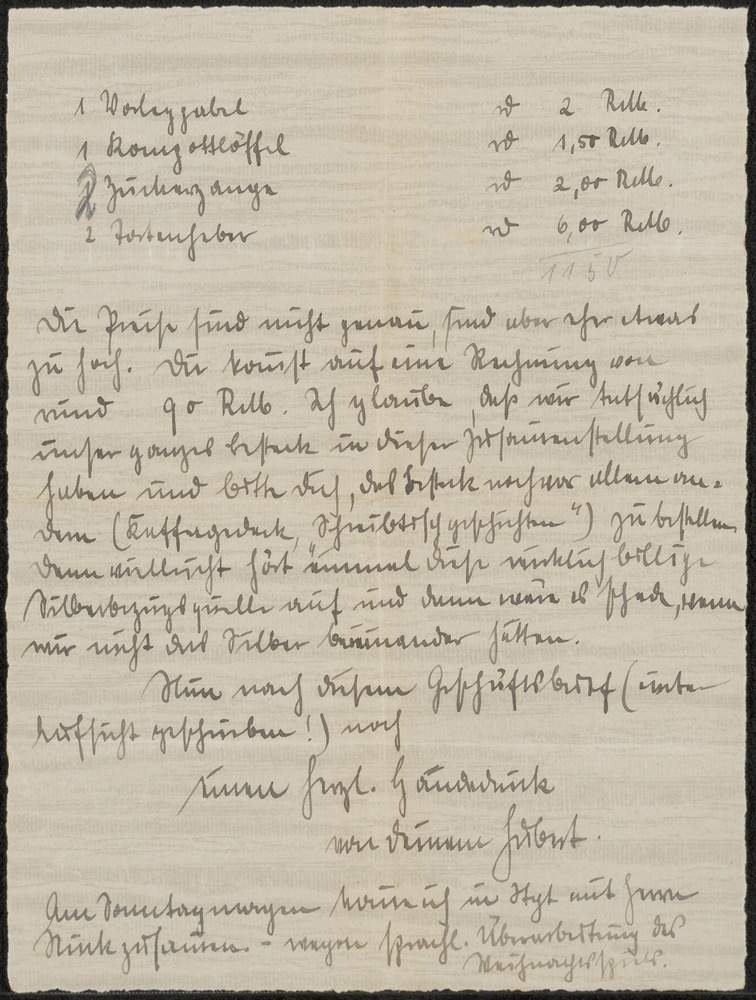 1 Vorleggabel rd 2 RMk.
1 Kompottlöffel rd 1,50 RMk.
2 Zuckerzange rd 2,00 RMk.
2 Tortenheber rd 6,00 RMk.
1150
Die Preise sind nicht genau, sind aber eher etwas
zu hoch. Du kommst auf eine Rechnung von
rund 90 RMk. Ich glaube, daß wir tatsächlich
unser ganzes Besteck in dieser Zusammenstellung
haben und bitte Dich, das Besteck noch vor allem an-
dern (Kaffeegedeck, Schreibtischgeschichten") zu bestellen,
denn vielleicht hört einmal diese wirklich billige
Silberbezugsquelle auf und dann wäre es schade, wenn
wir nicht das Silber beieinander hätten.
Nun nach diesem Geschäftsbrief (unter
Aufsicht geschrieben!) noch
einen herzl. Händedruck
von Deinem Hubert.
Am Sonntagmorgen komme ich in Stgt mit Herrn
zusammen. - wegen sprachl. Überarbeitung des
Weihnachtsspiels.